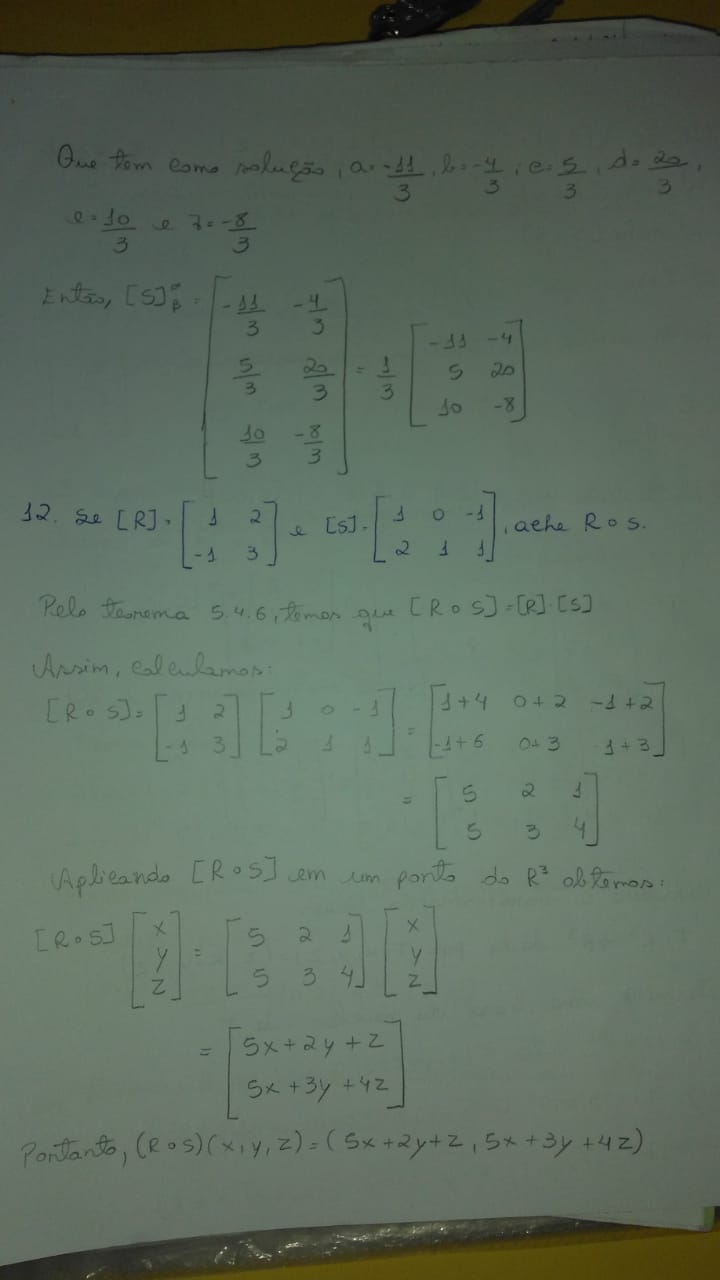 Que tem como solução, a = -11/3, b = -4/3, c = 5/3, d = 20/3,
e = 10/3 e f = -8/3
Então, [S]^α_β = [ -11/3 -4/3 ; 5/3 20/3 ; 10/3 -8/3 ] = 1/3 [ -11 -4 ; 5 20 ; 10 -8 ]
12. Se [R] = [ 1 2 ; -1 3 ] e [S] = [ 1 0 -1 ; 2 1 1 ], ache R o S.
Pelo teorema 5.4.6, temos que [R o S] = [R]·[S]
Assim, calculamos:
[R o S] = [ 1 2 ; -1 3 ] [ 1 0 -1 ; 2 1 1 ] = [ 1+4 0+2 -1+2 ; -1+6 0+3 1+3 ]
= [ 5 2 1 ; 5 3 4 ]
Aplicando [R o S] em um ponto do R³ obtemos:
[R o S] [ x ; y ; z ] = [ 5 2 1 ; 5 3 4 ] [ x ; y ; z ]
= [ 5x+2y+z ; 5x+3y+4z ]
Portanto, (R o S)(x, y, z) = (5x+2y+z, 5x+3y+4z)